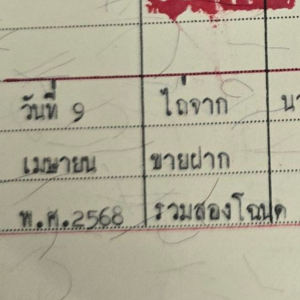 วันที่ 9 ไถ่จาก
เมษายน ขายฝาก
พ.ศ.2568 รวมสองโฉนด